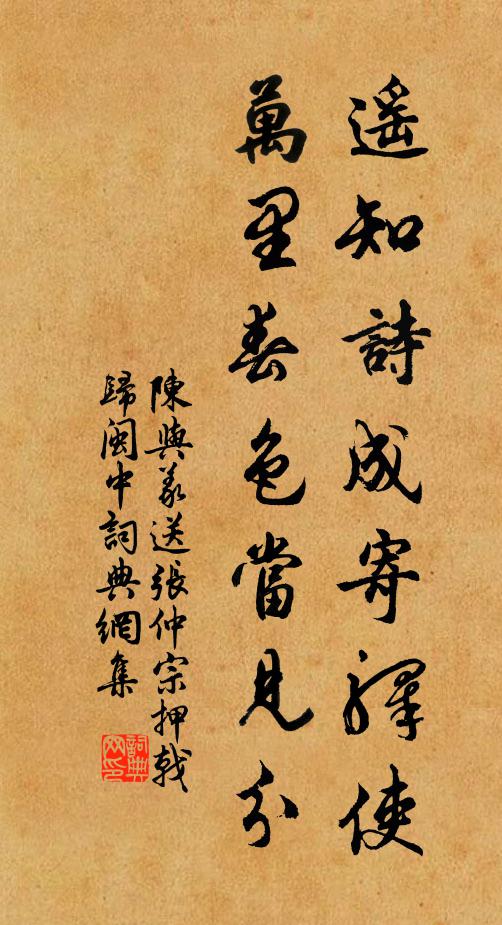 遥知詩成寄驛使
萬里春色當見分
陳與義送張仲宗押戟
歸閩中詞典網集
詞典
网印